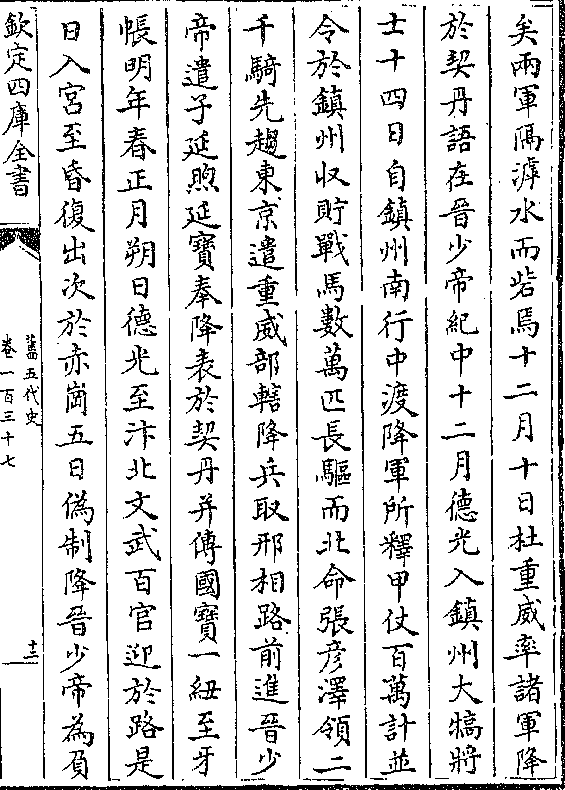 矣兩軍隔滹水而砦焉十二月十日杜重威率諸軍降
於契丹語在晉少帝紀中十二月德光入鎮州大犒將
士十四日自鎮州南行中渡降軍所釋甲仗百萬計並
令於鎮州收貯戰馬數萬匹長驅而北命張彦澤領二
千騎先趨東京遣重威部轄降兵取邢相路前進晉少
帝遣子延煦延寶奉降表於契丹并傳國寶一紐至牙
帳明年春正月朔日德光至汴北文武百官迎於路是
日入宮至昏復出次於赤崗五日偽制降晉少帝為負
欽定四庫全書
舊五代史
卷一百三十七
十二